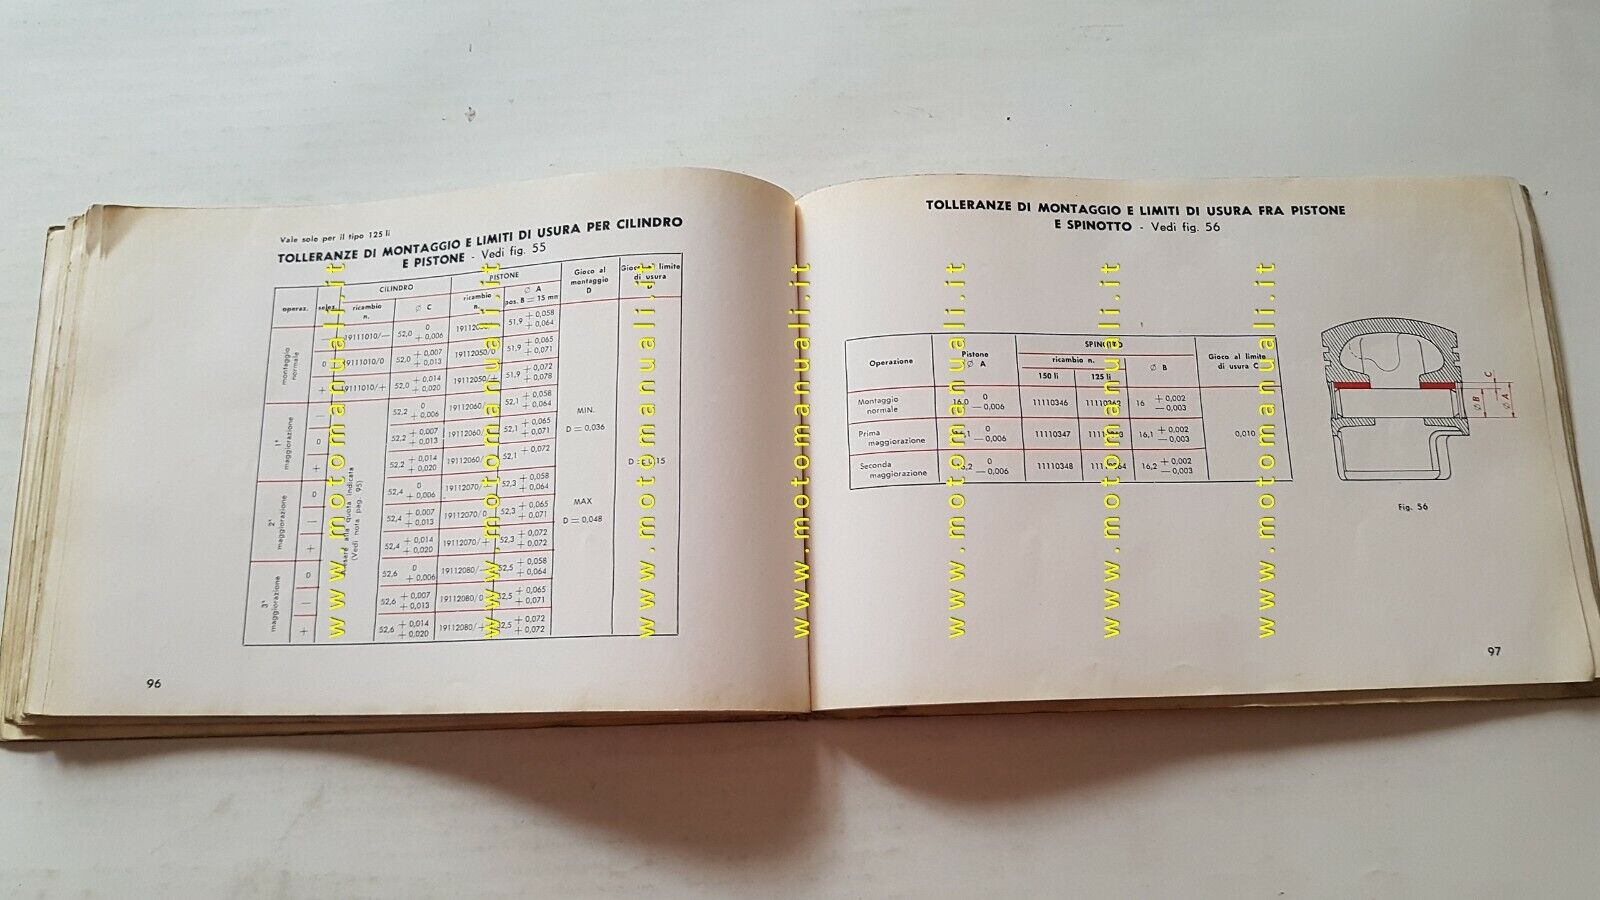 Vale solo per il tipo 125 li
TOLLERANZE DI MONTAGGIO E LIMITI DI USURA PER CILINDRO
E PISTONE - Vedi fig. 55
operaz. selez. CILINDRO PISTONE Gioco al montaggio D Gioco al limite di usura
ricambio n. Ø C ricambio n. Ø A pos. B = 15 mm
montaggio normale
— 19111010/— 52,0 0 + 0,006 51,9 + 0,058 + 0,064
0 19111010/0 52,0 + 0,007 + 0,013 19112050/0 51,9 + 0,065 + 0,071
+ 19111010/+ 52,0 + 0,014 + 0,020 19112050/+ 51,9 + 0,072 + 0,078
1ª maggiorazione
— 52,2 0 + 0,006 19112060/— 52,1 + 0,058 + 0,064
0 52,2 + 0,007 + 0,013 19112060/0 52,1 + 0,065 + 0,071
+ 52,2 + 0,014 + 0,020 19112060/+ 52,1 + 0,072
2ª maggiorazione
0 52,4 0 + 0,006 19112070/— 52,3 + 0,058 + 0,064
— 52,4 + 0,007 + 0,013 19112070/0 52,3 + 0,065 + 0,071
+ 52,4 + 0,014 + 0,020 19112070/+ 52,3 + 0,072 + 0,072
3ª maggiorazione
0 52,6 0 + 0,006 19112080/— 52,5 + 0,058 + 0,064
— 52,6 + 0,007 + 0,013 19112080/0 52,5 + 0,065 + 0,071
+ 52,6 + 0,014 + 0,020 19112080/+ 52,5 + 0,072 + 0,072
alla quota indicata
(Vedi nota pag. 95)
MIN.
D = 0,036
MAX
D = 0,048
96
TOLLERANZE DI MONTAGGIO E LIMITI DI USURA FRA PISTONE
E SPINOTTO - Vedi fig. 56
Operazione Pistone Ø A SPINOTTO Gioco al limite di usura C
ricambio n. Ø B
150 li 125 li
Montaggio normale 16,0 0 — 0,006 11110346 16 + 0,002 — 0,003
Prima maggiorazione 0 — 0,006 11110347 16,1 + 0,002 — 0,003 0,010
Seconda maggiorazione 0 — 0,006 11110348 16,2 + 0,002 — 0,003
C
Ø B
Ø A
Fig. 56
97
www.motomanuali.it
www.motomanuali.it
www.motomanuali.it
www.motomanuali.it
www.motomanuali.it
www.motomanuali.it
www.motomanuali.it